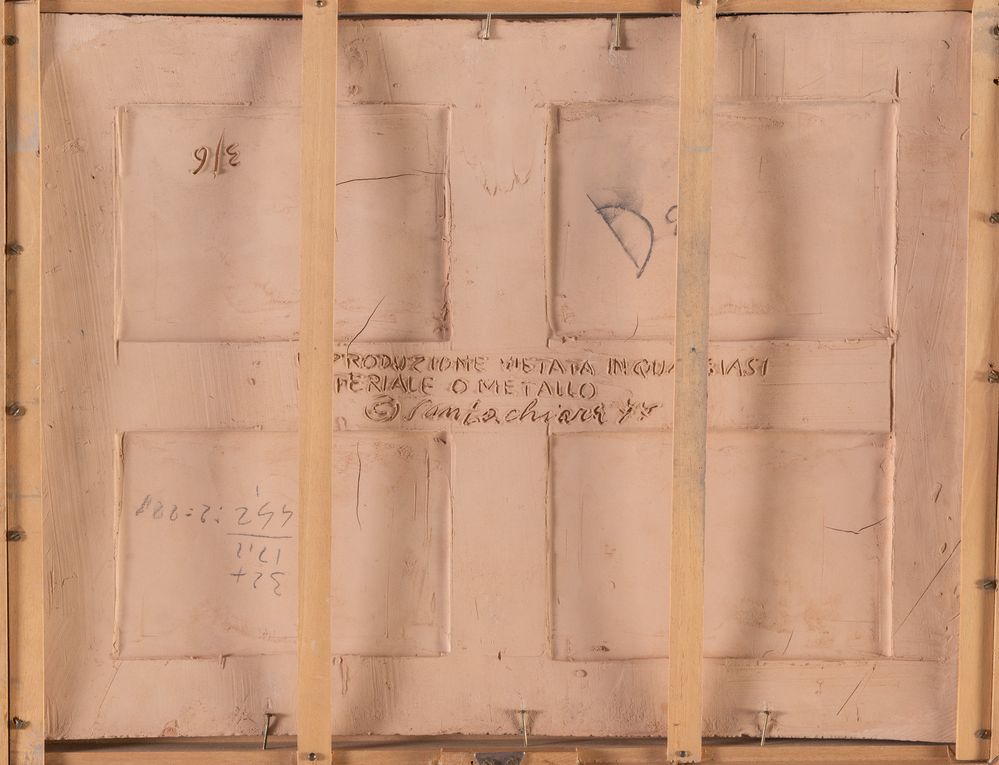 3/6
D
PRODUZIONE VIETATA IN QUA SIASI
TERIALE O METALLO
© Santachiara
32 +
12,2
44,2 : 2 = 22,1